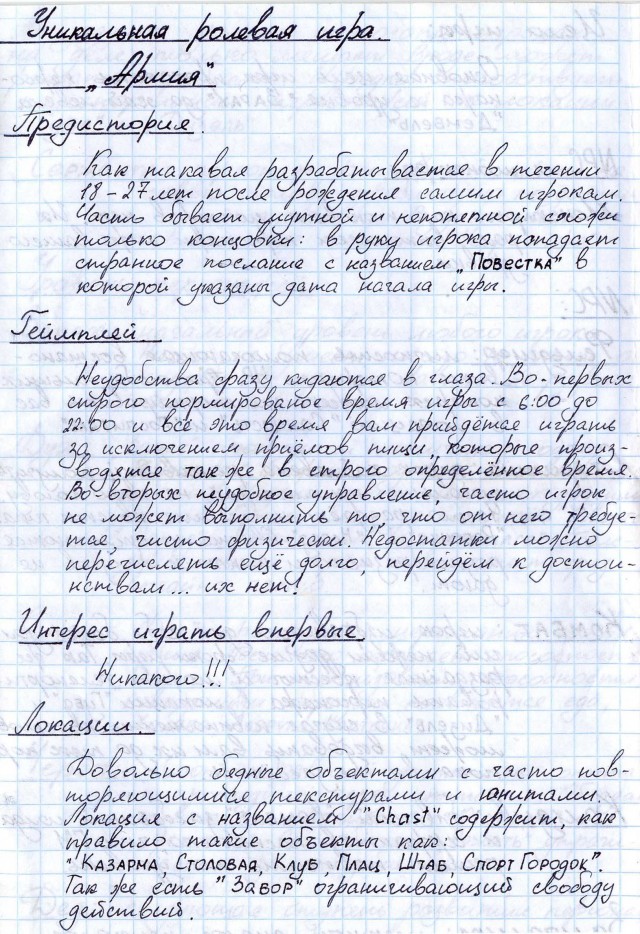 Уникальная ролевая игра.
„Армия"
Предистория.
Как такавая разрабатывастае в течении
18-27 лет после рождения самим игрокам.
Часть бывает мутной и непонятной схожи
только концовки: в руку игрока попадает
странное послание с названием „Повестка" в
которой указаны дата начала игры.
Геймплей.
Неудобства сразу кидаются в глаза. Во-первых
строго нормированое время игры с 6:00 до
22:00 и всё это время вам прийдётся играть
за исключением приёмов пищи, которые произ-
водятся так же в строго определённое время.
Во-вторых неудобное управление, часто игрок
не может выполнить то, что от него требуе-
тся, чисто физически. Недостатки можно
перечислять ещё долго, перейдём к достои-
нствам... их нет!
Интерес играть впервые.
Никакого!!!
Локации.
Довольно бедные объектами с часто пов-
торяющимися текстурами и юнитами.
Локация с названием "Chast" содержит, как
правило такие объекты как:
"Казарма, Столовая, Клуб, Плац, Штаб, Спорт Городок".
Так же есть "Забор" ограничивающий свободу
действий.